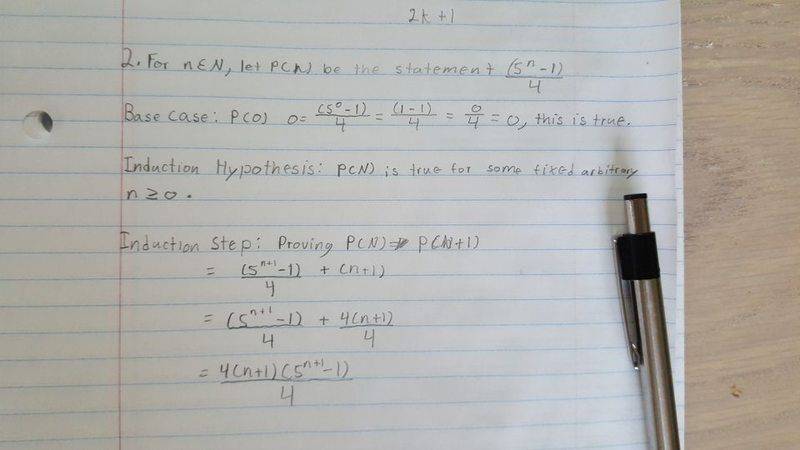 2k +1
2. For n∈N, let P(n) be the statement (5^n -1)/4
Base Case: P(0) 0= (5^0-1)/4 = (1-1)/4 = 0/4 = 0, this is true.
Induction Hypothesis: P(N) is true for some fixed arbitrary
n ≥ 0.
Induction Step: Proving P(N)⇒ P(N+1)
= (5^{n+1}-1)/4 + (n+1)
= (5^{n+1}-1)/4 + 4(n+1)/4
= 4(n+1)(5^{n+1}-1)/4